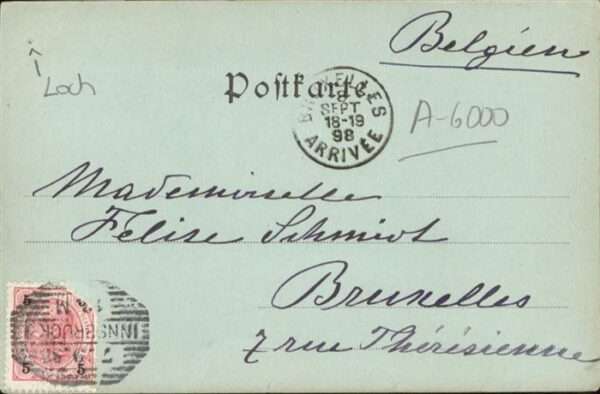 Belgien
Loch
Postkarte
BRUXELLES
SEPT
18-19
98
ARRIVÉE
A-6000
Mademoiselle
Felise Schmidt
Bruxelles
7 rue Thérésienne
5 5
INNSBRUCK
5 5